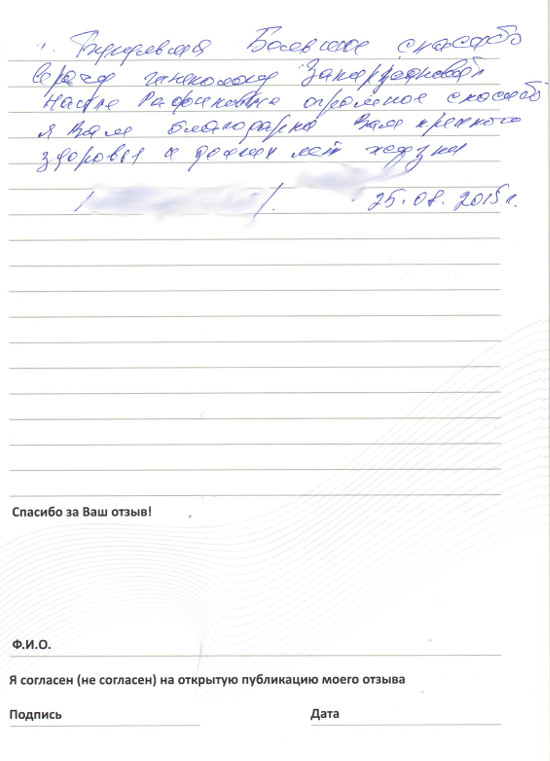 Большое спасибо
врачу гинекологу
Наиле Рафиковне огромное спасибо
я Вам благодарна Вам крепкого
здоровья и долгих лет жизни
25.08.2015 г.
Спасибо за Ваш отзыв!
Ф.И.О.
Я согласен (не согласен) на открытую публикацию моего отзыва
Подпись Дата